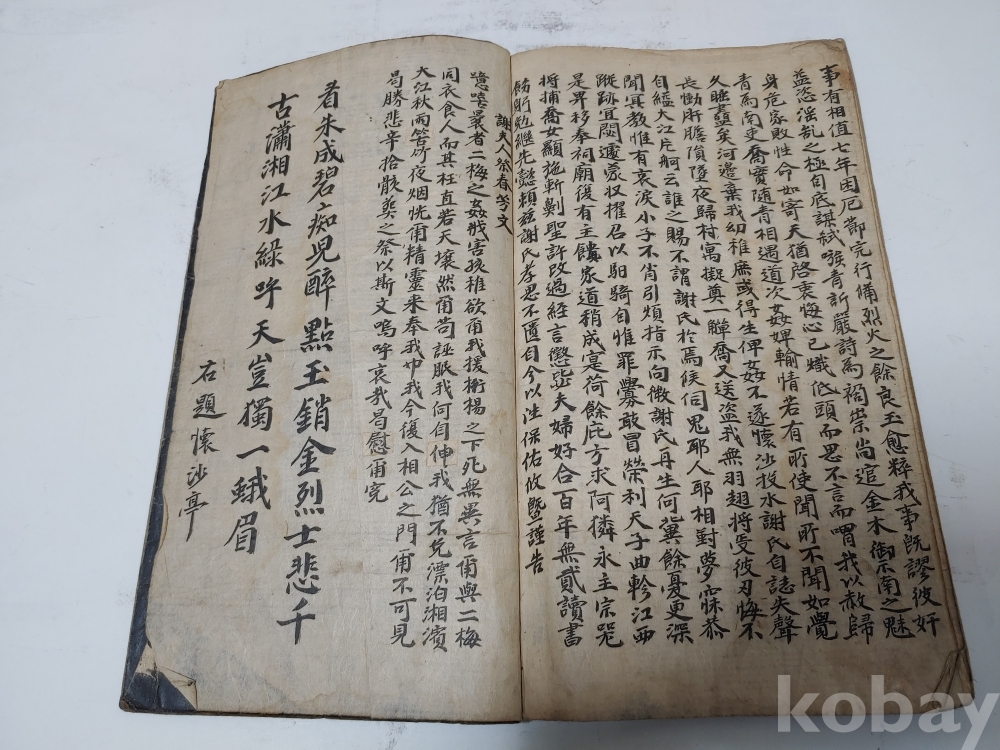 事有相值七年困厄節完行俑烈火之餘良玉愈粹我事旣謬彼奸
益恣淫乱之極自底謀弑嗾青訴嚴詩為禍祟尚逭金木御不南之魅
身危家敗性命如寄天猶啓衷悔心已孅低頭而思不言而喟我以赦歸
青馬南吏喬實随青相遇道次姦婢輸情若有所使聞所不聞如覺
久睡盡矣河邊棄我幼稚庶或得生俾姦不遂懷沙投水謝氏自誌失聲
長慟肝膽隕墜夜歸村寓擬奠一觶喬又送盜我無羽翅將受彼刃悔不
自縊大江片舸云誰之賜不謂謝氏於焉候伺鬼耶人耶相對夢寐恭
聞冥教惟有哀淚小子不肖引頻指示向微謝氏再生何冀餘憂更深
蹤跡宜閟遽蒙收擢召以馹騎自惟罪釁敢冒榮利天子曲軫江西
是畀移奉祠廟後有主饋家道稍成寔荷餘庇方求阿憐永主宗祀
將捕喬女顯施斬劓聖許改過經言懲毖夫婦好合百年無貳讀書
飭躬勉繼先懿賴玆謝氏孝思不匱自今以往保佑攸曁謹告
謝夫人祭春芳文
噫嘻曩者二梅之姦戕害孩稚欲甭我援衡楊之下死無異言甭與二梅
同衣食人而其枉直若天壤然甭苟誣服我何自伸我猶不免漂泊湘濱
大江秋雨苦竹夜烟恍甭精靈来奉我巾我今復入相公之門甭不可見
曷勝悲辛拾骸奠之祭以斯文嗚呼哀哉曷慰甭寃
看朱成碧痴兒醉點玉銷金烈士悲千
古瀟湘江水綠呼天豈獨一蛾眉
右題懷沙亭
kobay